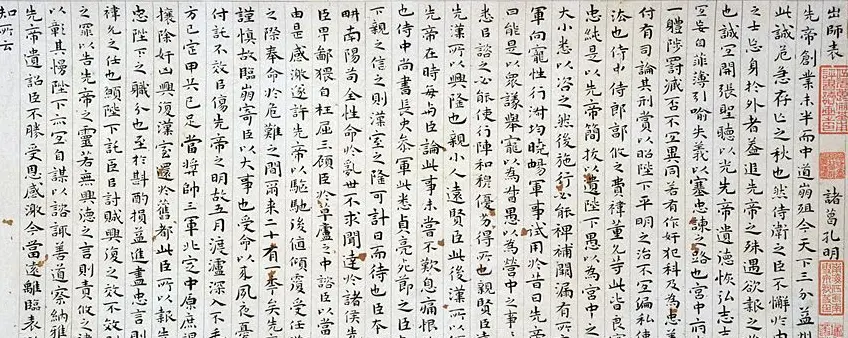 出師表　諸葛孔明
先帝創業未半而中道崩殂今天下三分益州
此誠危急存亡之秋也然侍衛之臣不懈於内
之士忘身於外者蓋追先帝之殊遇欲報之
也誠宜開張聖聽以光先帝遺德恢弘志士
宜妄自菲薄引喻失義以塞忠諫之路也宮中府
一體陟罰臧否不宜異同若有作奸犯科及為忠善
付有司論其刑賞以昭陛下平明之治不宜偏私使
法也侍中侍郎郭攸之費禕董允等此皆良實
忠純是以先帝簡拔以遺陛下愚以為宮中之
大小悉以咨之然後施行必能裨補闕漏有所
軍向寵性行淑均曉暢軍事試用於昔日先帝
曰能是以衆議舉寵以為督愚以為營中之事
悉以諮之必能使行陣和穆優劣得所也親賢臣遠
先漢所以興隆也親小人遠賢臣此後漢所以
先帝在時每與臣論此事未嘗不歎息痛恨
也侍中尚書長史參軍此悉貞亮死節之臣
下親之信之則漢室之隆可計日而待也臣本
畊南陽苟全性命於亂世不求聞達於諸侯先
臣卑鄙猥自枉屈三顧臣於草廬之中諮臣以當
由是感激遂許先帝以驅馳後值傾覆受任
之際奉命於危難之間爾來二十有一年矣先帝
謹慎故臨崩寄臣以大事也受命以來夙夜憂
付託不效以傷先帝之明故五月渡瀘深入不毛
方已定甲兵已足當獎帥三軍北定中原庶
攘除奸凶興復漢室還於舊都此臣所以報
忠陛下之職分也至於斟酌損益進盡忠言則
禕允之任也願陛下託臣以討賊興復之效不效則
之罪以告先帝之靈若無興德之言則責攸之
以彰其慢陛下亦宜自謀以諮諏善道察納雅
先帝遺詔臣不勝受恩感激今當遠離臨表
知所云